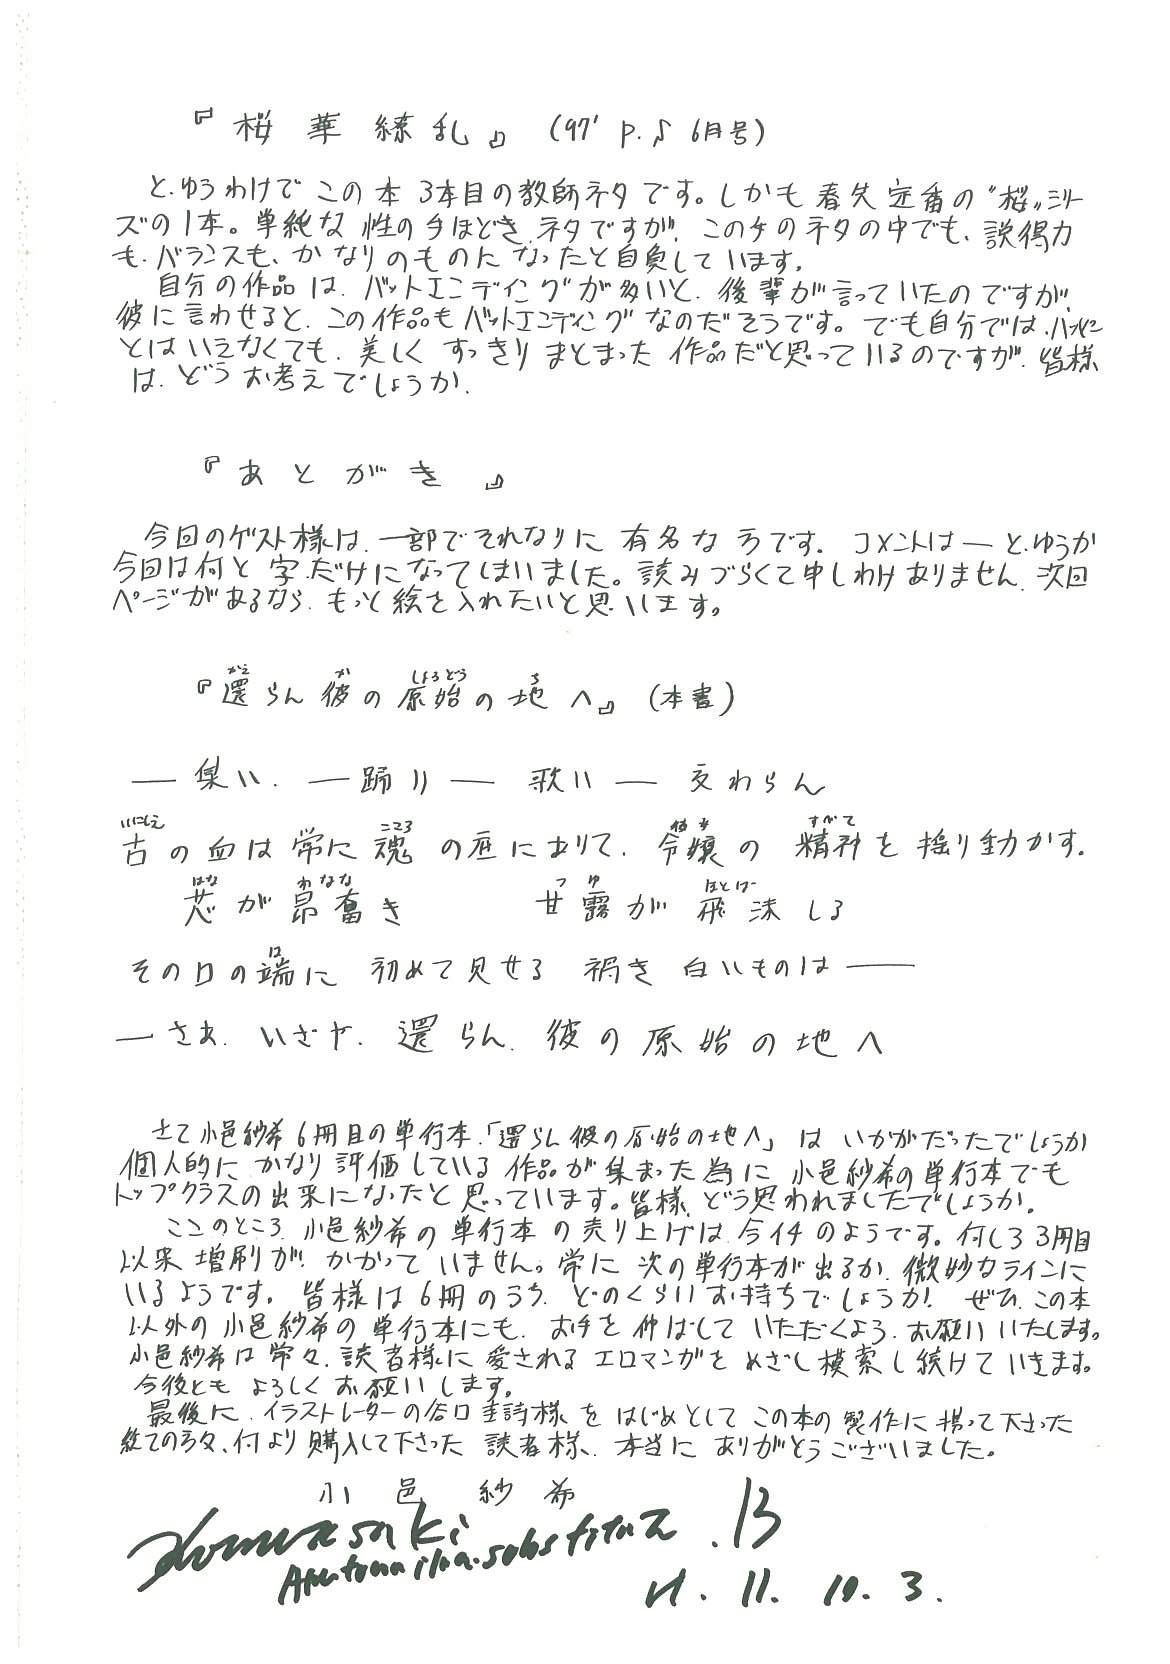 『桜華繚乱』(97' P.♪ 6月号)
と、ゆうわけで この本 3本目の教師ネタです。しかも 春先定番の〝桜〟シリー
ズの1本。単純な 性の手ほどき ネタですが、このテのネタの中でも、説得力
も、バランスも、かなりのものになったと自負しています。
自分の作品は、バットエンディングが多いと、後輩が言っていたのですが、
彼に言わせると、この作品もバットエンディングなのだそうです。でも自分では、ハッピー
とはいえなくても、美しく すっきり まとまった 作品だと思っているのですが、皆様
は、どうお考えでしょうか、
『あとがき』
今回のゲスト様は、一部でそれなりに 有名な方です。コメントは―と、ゆうか
今回は何と 字だけになってしまいました。読みづらくて申しわけありません、次回
ページがあるなら、もっと絵を入れたいと思います。
かえ か しょろどう ち
『還らん彼の原始の地へ』(本書)
― 集い、― 踊り ― 歌い ― 交わらん
いにしえ こころ すがて
古の血は常に魂の底にありて、令嬢の 精神を揺り動かす、
はな わなな つゆ ほとばー
芯が昂奮き 甘露が 飛沫しる
は
その口の端に 初めて見せる 禍き 白いものは――
― さあ、いざや、還らん、彼の原始の地へ
さて小邑紗希6冊目の単行本、「還らん彼の原始の地へ」は いかがだったでしょうか
個人的に かなり評価している 作品が集まった為に 小邑紗希の単行本でも
トップクラスの出来になったと思っています。皆様、どう思われましたでしょうか。
ここのところ、小邑紗希の単行本の売り上げは、今イチのようです。何しろ3冊目
以来 増刷が かかって いません。常に 次の単行本が出るか、微妙なラインに
いるようです。皆様は6冊のうち、どのくらいお持ちでしょうか! ぜひ、この本
以外の 小邑紗希の 単行本にも、お手を伸ばして いただくよう、お願いいたします。
小邑紗希は常々、読者様に愛されるエロマンガをめざし模索し続けていきます。
今後とも よろしく お願いします。
最後に、イラストレーターの谷口圭詩様をはじめとして この本の製作に携って下さった
総ての方々、何より購入して下さった 読者様、本当に ありがとうございました。
小邑 紗希
H. 11. 10. 3.